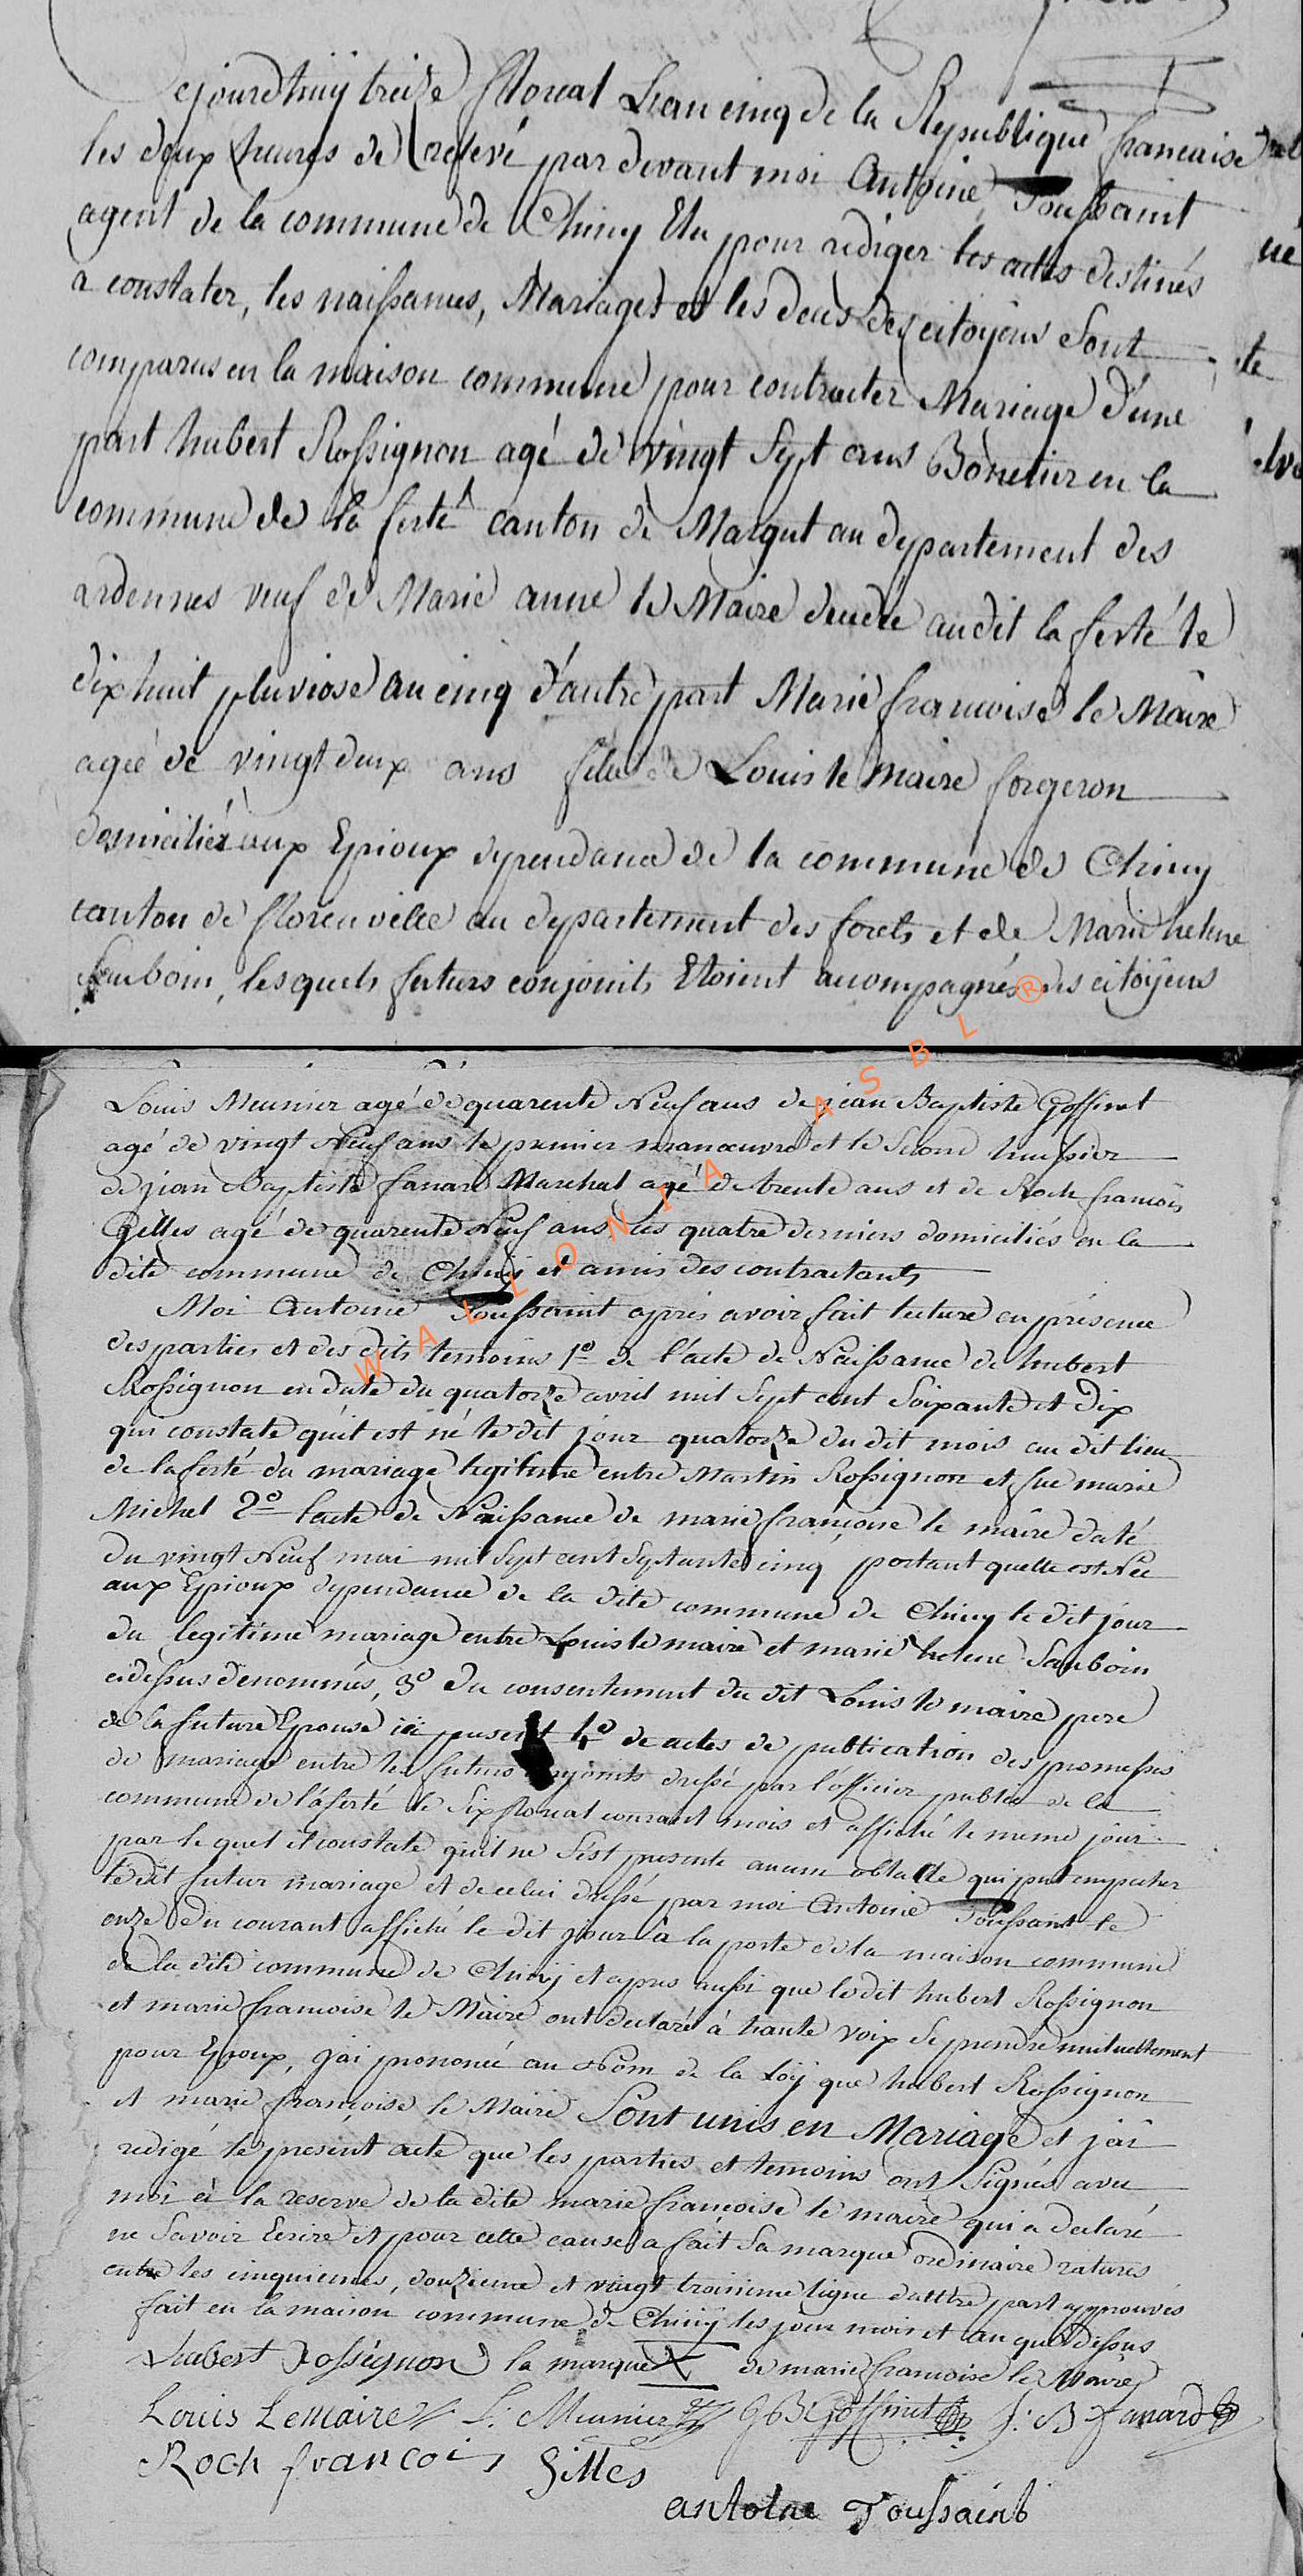 Cejourdhuÿ treize floreal Lan cinq de la Republique francaise
les deux heures de relevé par devant moi Antoine Toussaint
agent de la commune de Chiny Elu pour rediger les actes destinés
a constater, les naissances, Mariages et les deces des citoÿens Sont
comparus en la maison commune pour contracter Mariage d'une
part hubert Rossignon agé de vingt Sept ans Bonetier en la
commune de la ferté canton de Margut au departement des
ardennes veuf de Marie anne le Maire decedée audit la ferté le
dix huit pluviose an cinq d'autre part Marie francoise le Maire
agée de vingt deux ans fille de Louis le Maire forgeron
domiciliés aux Epioux dependance de la commune de Chiny
canton de florenville au departement des forets et de Marie helene
Sauboin, lesquels futurs conjoints Etoient accompagnés des citoÿens
Louis Meunier agé de quarente Neuf ans de jean Baptiste Goffinet
agé de vingt Neuf ans le premier manœuvre et le Second huissier
de jean Baptiste fanard Marchal agé de trente ans et de Roch francois
Gilles agé de quarente Neuf ans les quatre derniers domiciliés en la
dite commune de Chiny et amis des contractants
Moi Antoine Toussaint apres avoir fait lecture en présence
des parties et des dits temoins 1º de l'acte de Naissance de hubert
Rossignon en date du quatorze avril mil Sept cent Soixante et dix
qui constate qu'il est né le dit jour quatorze du dit mois au dit lieu
de la ferté du mariage legitime entre Martin Rossignon et fue marie
Michel 2º l'acte de Naissance de marie françoise le maire daté
du vingt Neuf mai mil Sept cent Septante cinq portant quelle est Née
aux Epioux dependance de la dite commune de Chiny le dit jour
du legitime mariage entre Louis le maire et marie helene Sauboin
cidessus denommés, 3º du consentement du dit Louis le maire pere
de la future Epouse ici present 4º de actes de publication des promesses
de mariage entre les futurs conjoints dressé par l'officier public de la
commune de laferté le Six floreal courant mois et affiché le meme jour
par le quel il constate qu'il ne S'est presenté aucun obstacle qui put empecher
le dit futur mariage et de celui dressé par moi Antoine Toussaint le
onze du courant affiché le dit jour à la porte de la maison commune
de la dite commune de Chiny et apres aussi que ledit hubert Rossignon
et marie francoise le Maire ont declaré à haute voix Se prendre mutuellement
pour Epoux, j'ai prononcé au Nom de la Loÿ que hubert Rossignon
et marie françoise le Maire Sont unis en Mariage et j'ai
redigé le present acte que les parties et temoins ont Signés avec
moi à la reserve de la dite marie françoise le maire qui a declaré
ne Savoir Ecrire et pour cette cause a fait Sa marque ordinaire ratures
entre les cinquiemes, douzieme et vingt troisieme ligne d'autre part approuvés
fait en la maison commune de Chiny les jour mois et an que dessus
hubert Rossignon la marque X de marie francoise le Maire
Louis Lemaire L. Meunier JB Goffinet J: B Fanard
Roch francois Gilles
antoine Toussaint
WALLONIA ASBL ®